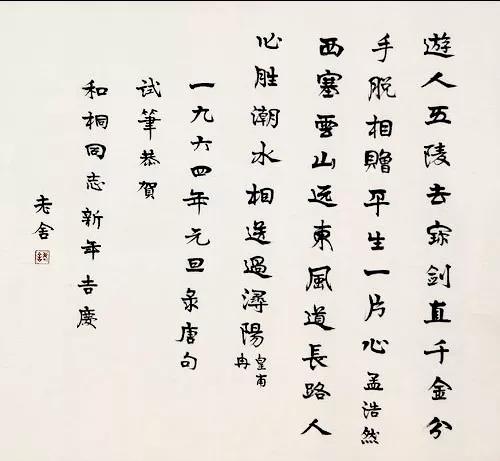 遊人五陵去寶劍直千金分
手脱相贈平生一片心孟浩然
西塞雲山远東風道長路人
心胜潮水相送過潯陽皇甫冉
一九六四年元旦录唐句
試筆恭賀
和桐同志新年吉慶
老舍